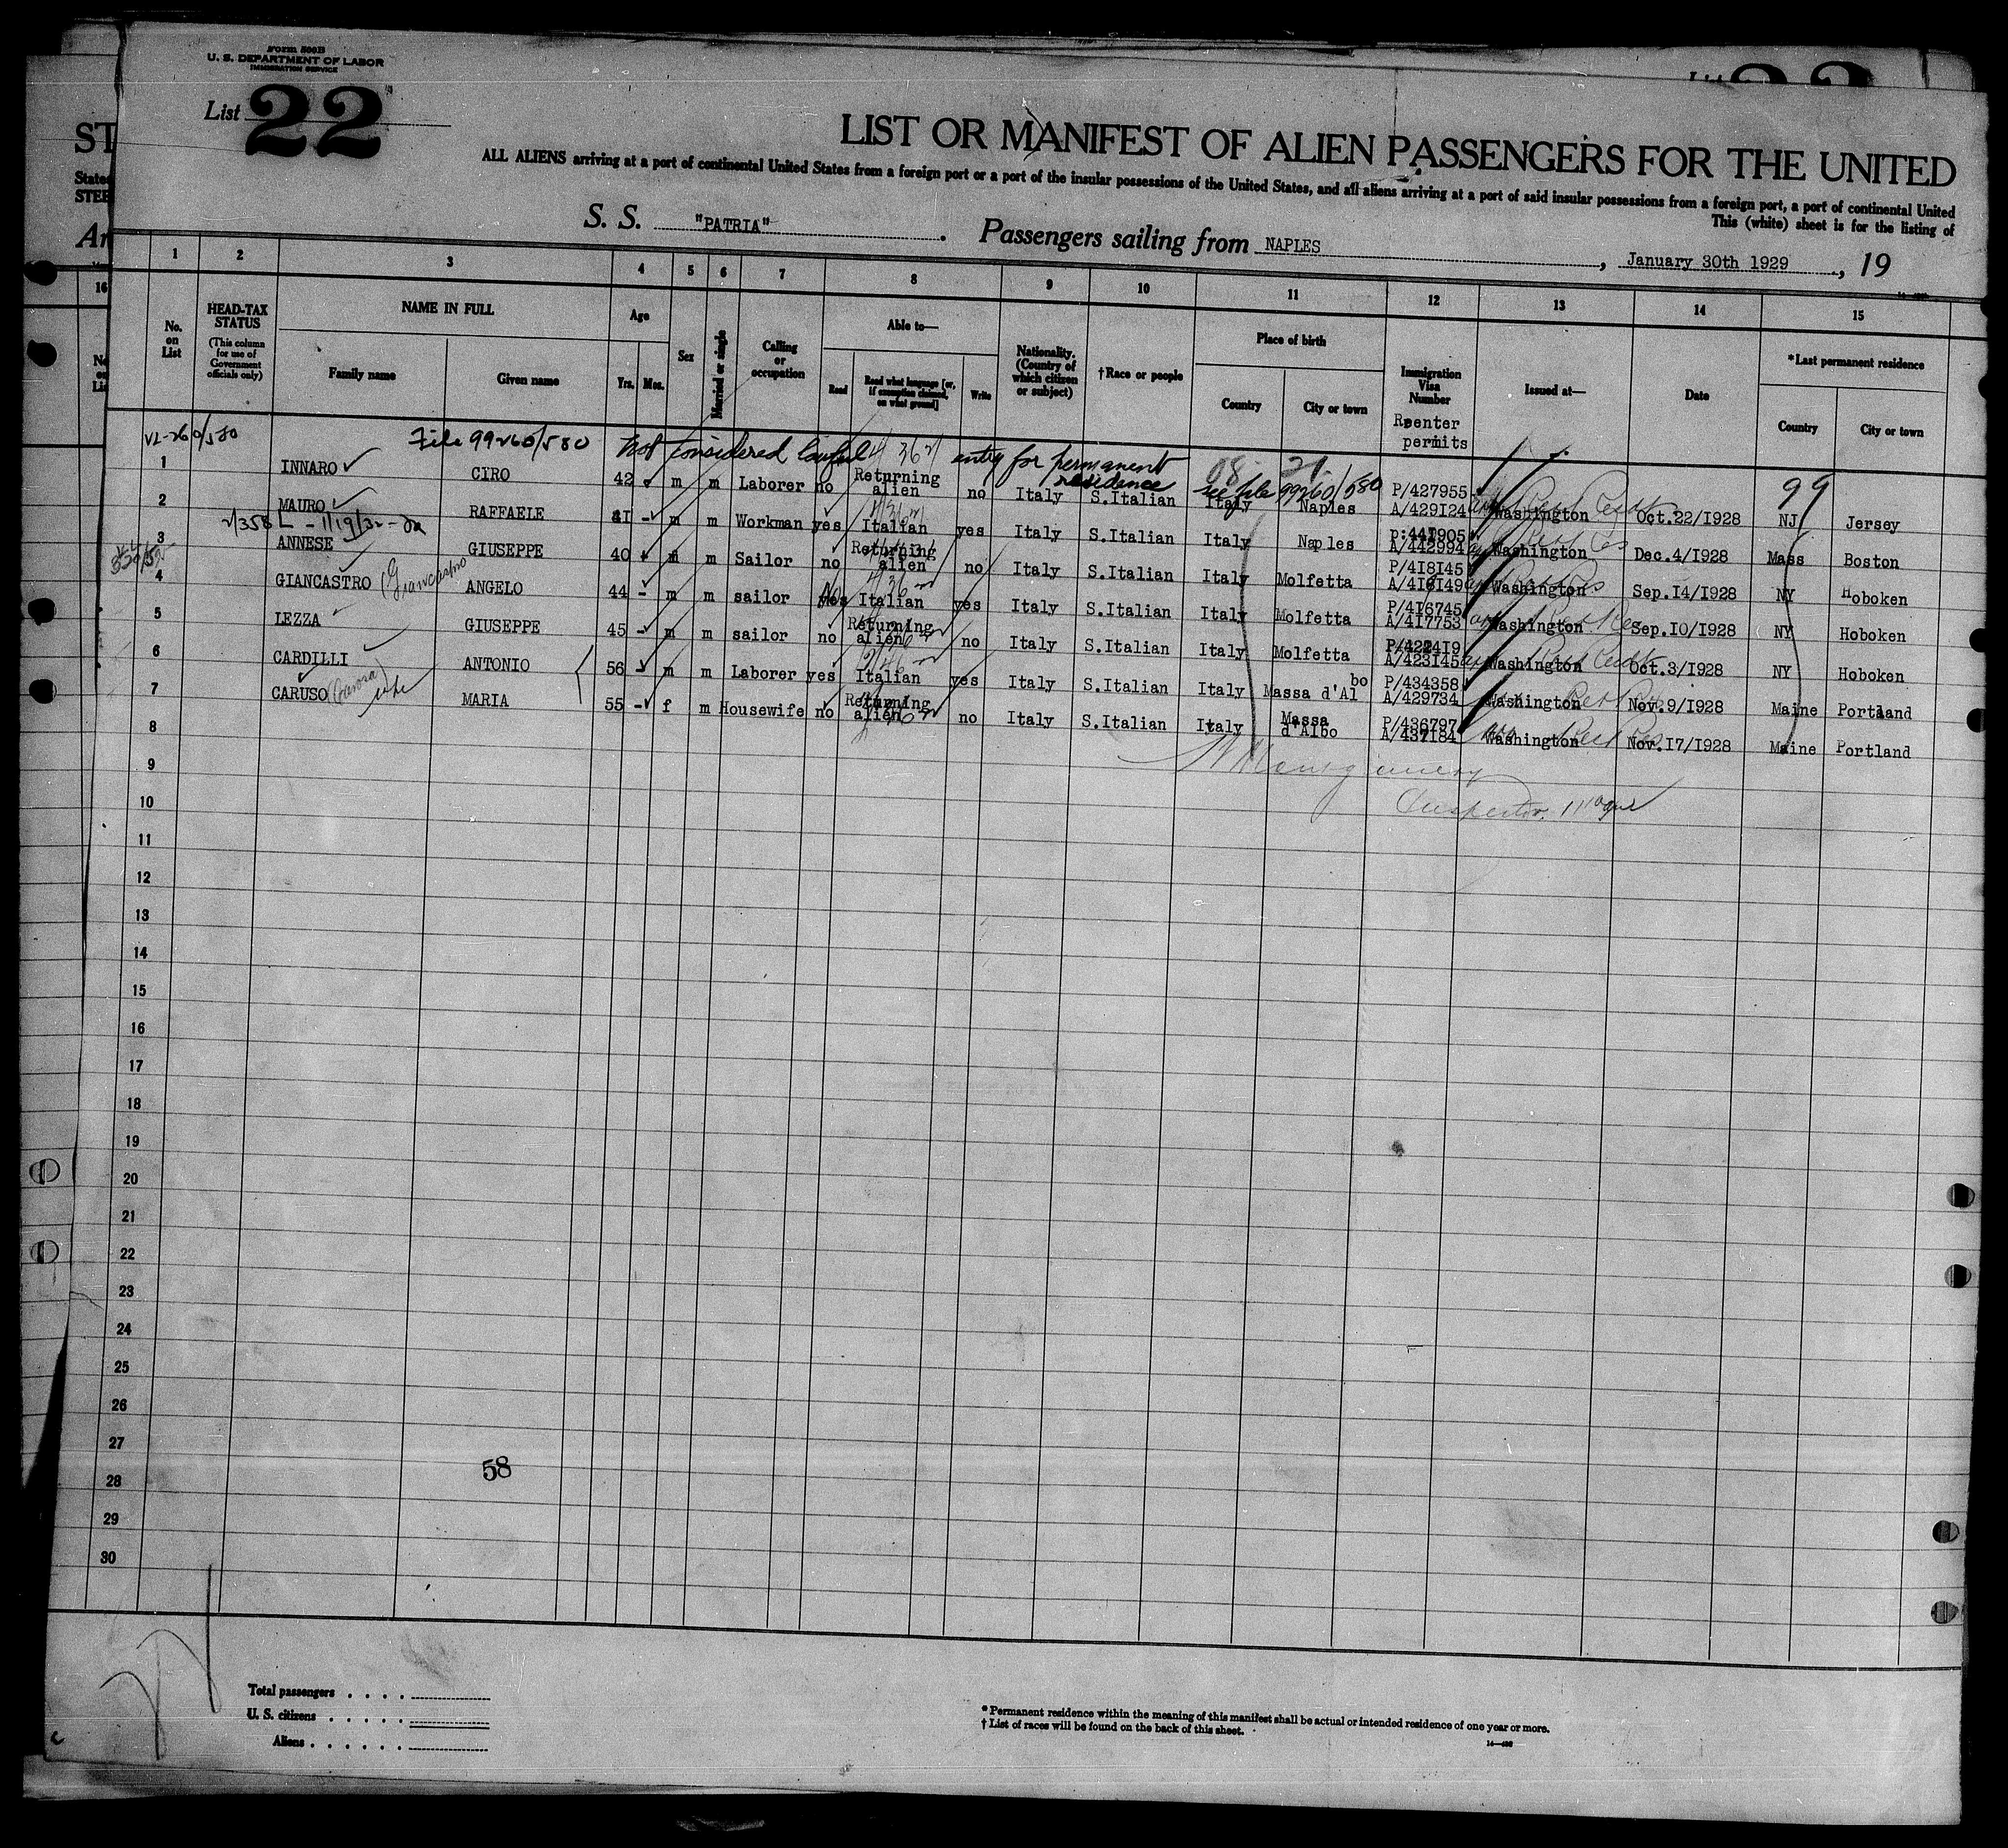 Form 500B
U. S. DEPARTMENT OF LABOR
IMMIGRATION SERVICE
List 22
LIST OR MANIFEST OF ALIEN PASSENGERS FOR THE UNITED
ALL ALIENS arriving at a port of continental United States from a foreign port or a port of the insular possessions of the United States, and all aliens arriving at a port of said insular possessions from a foreign port, a port of continental United
This (white) sheet is for the listing of
S. S. "PATRIA". Passengers sailing from NAPLES, January 30th 1929, 19
1 2 3 4 5 6 7 8 9 10 11 12 13 14 15
No. on List
HEAD-TAX STATUS
(This column for use of Government officials only)
NAME IN FULL
Family name Given name
Age
Yrs. Mos.
Sex
Married or single
Calling or occupation
Able to—
Read Read what language [or, if exemption claimed, on what ground] Write
Nationality. (Country of which citizen or subject)
†Race or people
Place of birth
Country City or town
Immigration Visa Number
Reenter permits
Issued at—
Date
*Last permanent residence
Country City or town
VL-260/580 File 99260/580 Not considered lawful entry for permanent residence see file 99260/580
1 INNARO CIRO 42 m m Laborer no Returning alien no Italy S.Italian Italy Naples P/427955 A/429I24 Washington Oct.22/I928 NJ Jersey
2 MAURO RAFFAELE 4I - m m Workman yes Italian yes Italy S.Italian Italy Naples P:441905 A/442994 Washington Dec.4/I928 Mass Boston
3 ANNESE GIUSEPPE 40 m m Sailor no Returning alien no Italy S.Italian Italy Molfetta P/4I8I45 A/4I8I49 Washington Sep.I4/I928 NY Hoboken
4 GIANCASTRO (Giancaspro ANGELO 44 - m m sailor yes Italian yes Italy S.Italian Italy Molfetta P/4I6745 A/4I7753 Washington Sep.IO/I928 NY Hoboken
5 LEZZA GIUSEPPE 45 - m m sailor no Returning alien no Italy S.Italian Italy Molfetta A/423I45 Washington Oct.3/I928 NY Hoboken
6 CARDILLI ANTONIO 56 - m m Laborer yes Italian yes Italy S.Italian Italy Massa d'Al bo P/434358 A/429734 Washington Nov.9/I928 Maine Portland
7 CARUSO wife MARIA 55 - f m Housewife no Returning alien no Italy S.Italian Italy Massa d'Albo P/436797 A/437I84 Washington Nov.I7/I928 Maine Portland
8
9
10
11
12
13
14
15
16
17
18
19
20
21
22
23
24
25
26
27
28
29
30
58
Total passengers
U. S. citizens
Aliens
* Permanent residence within the meaning of this manifest shall be actual or intended residence of one year or more.
† List of races will be found on the back of this sheet.